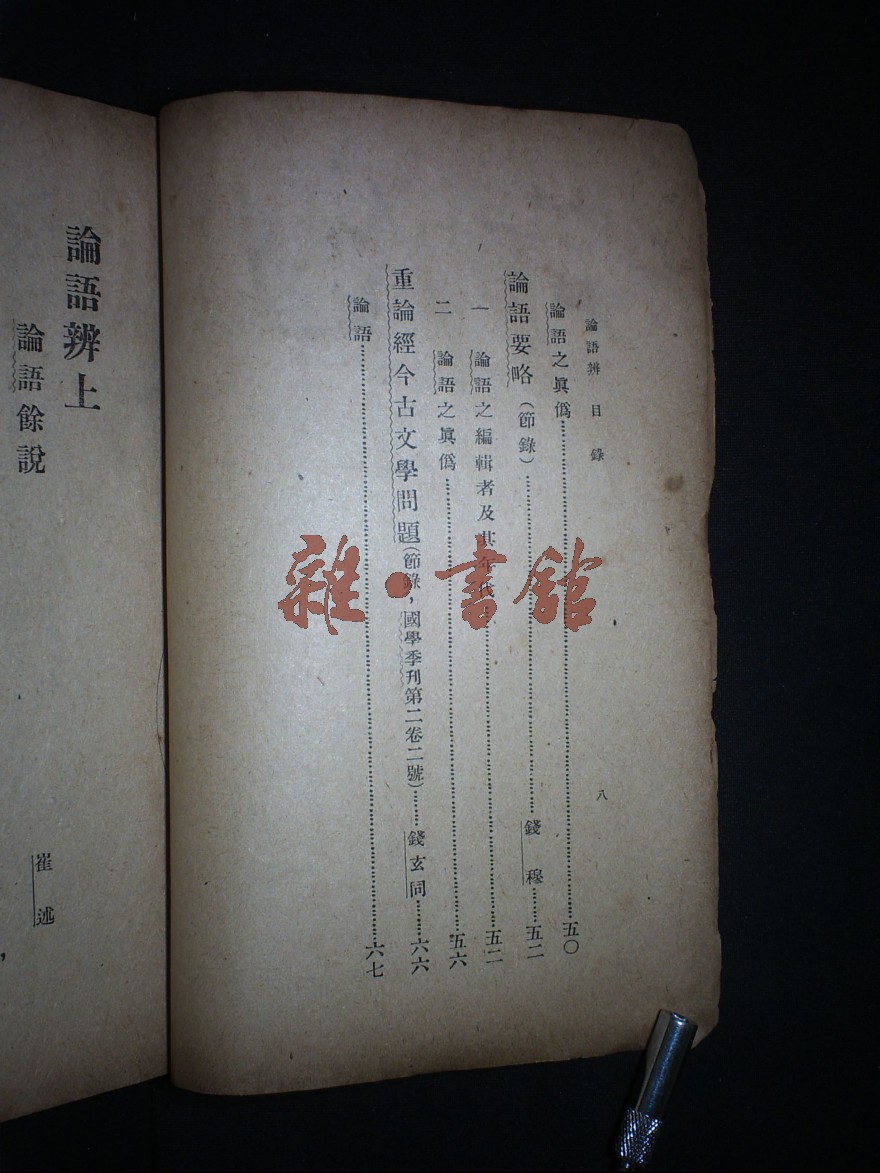 論語辨 目錄 八
論語之眞僞……五〇
論語要略(節錄)……錢 穆……五二
一 論語之編輯者及其年代……五二
二 論語之眞僞……五六
重論經今古文學問題(節錄,國學季刊第二卷二號)……錢玄同……六六
論語……六七
論語辨上
論語餘說
崔 述
雜·書館